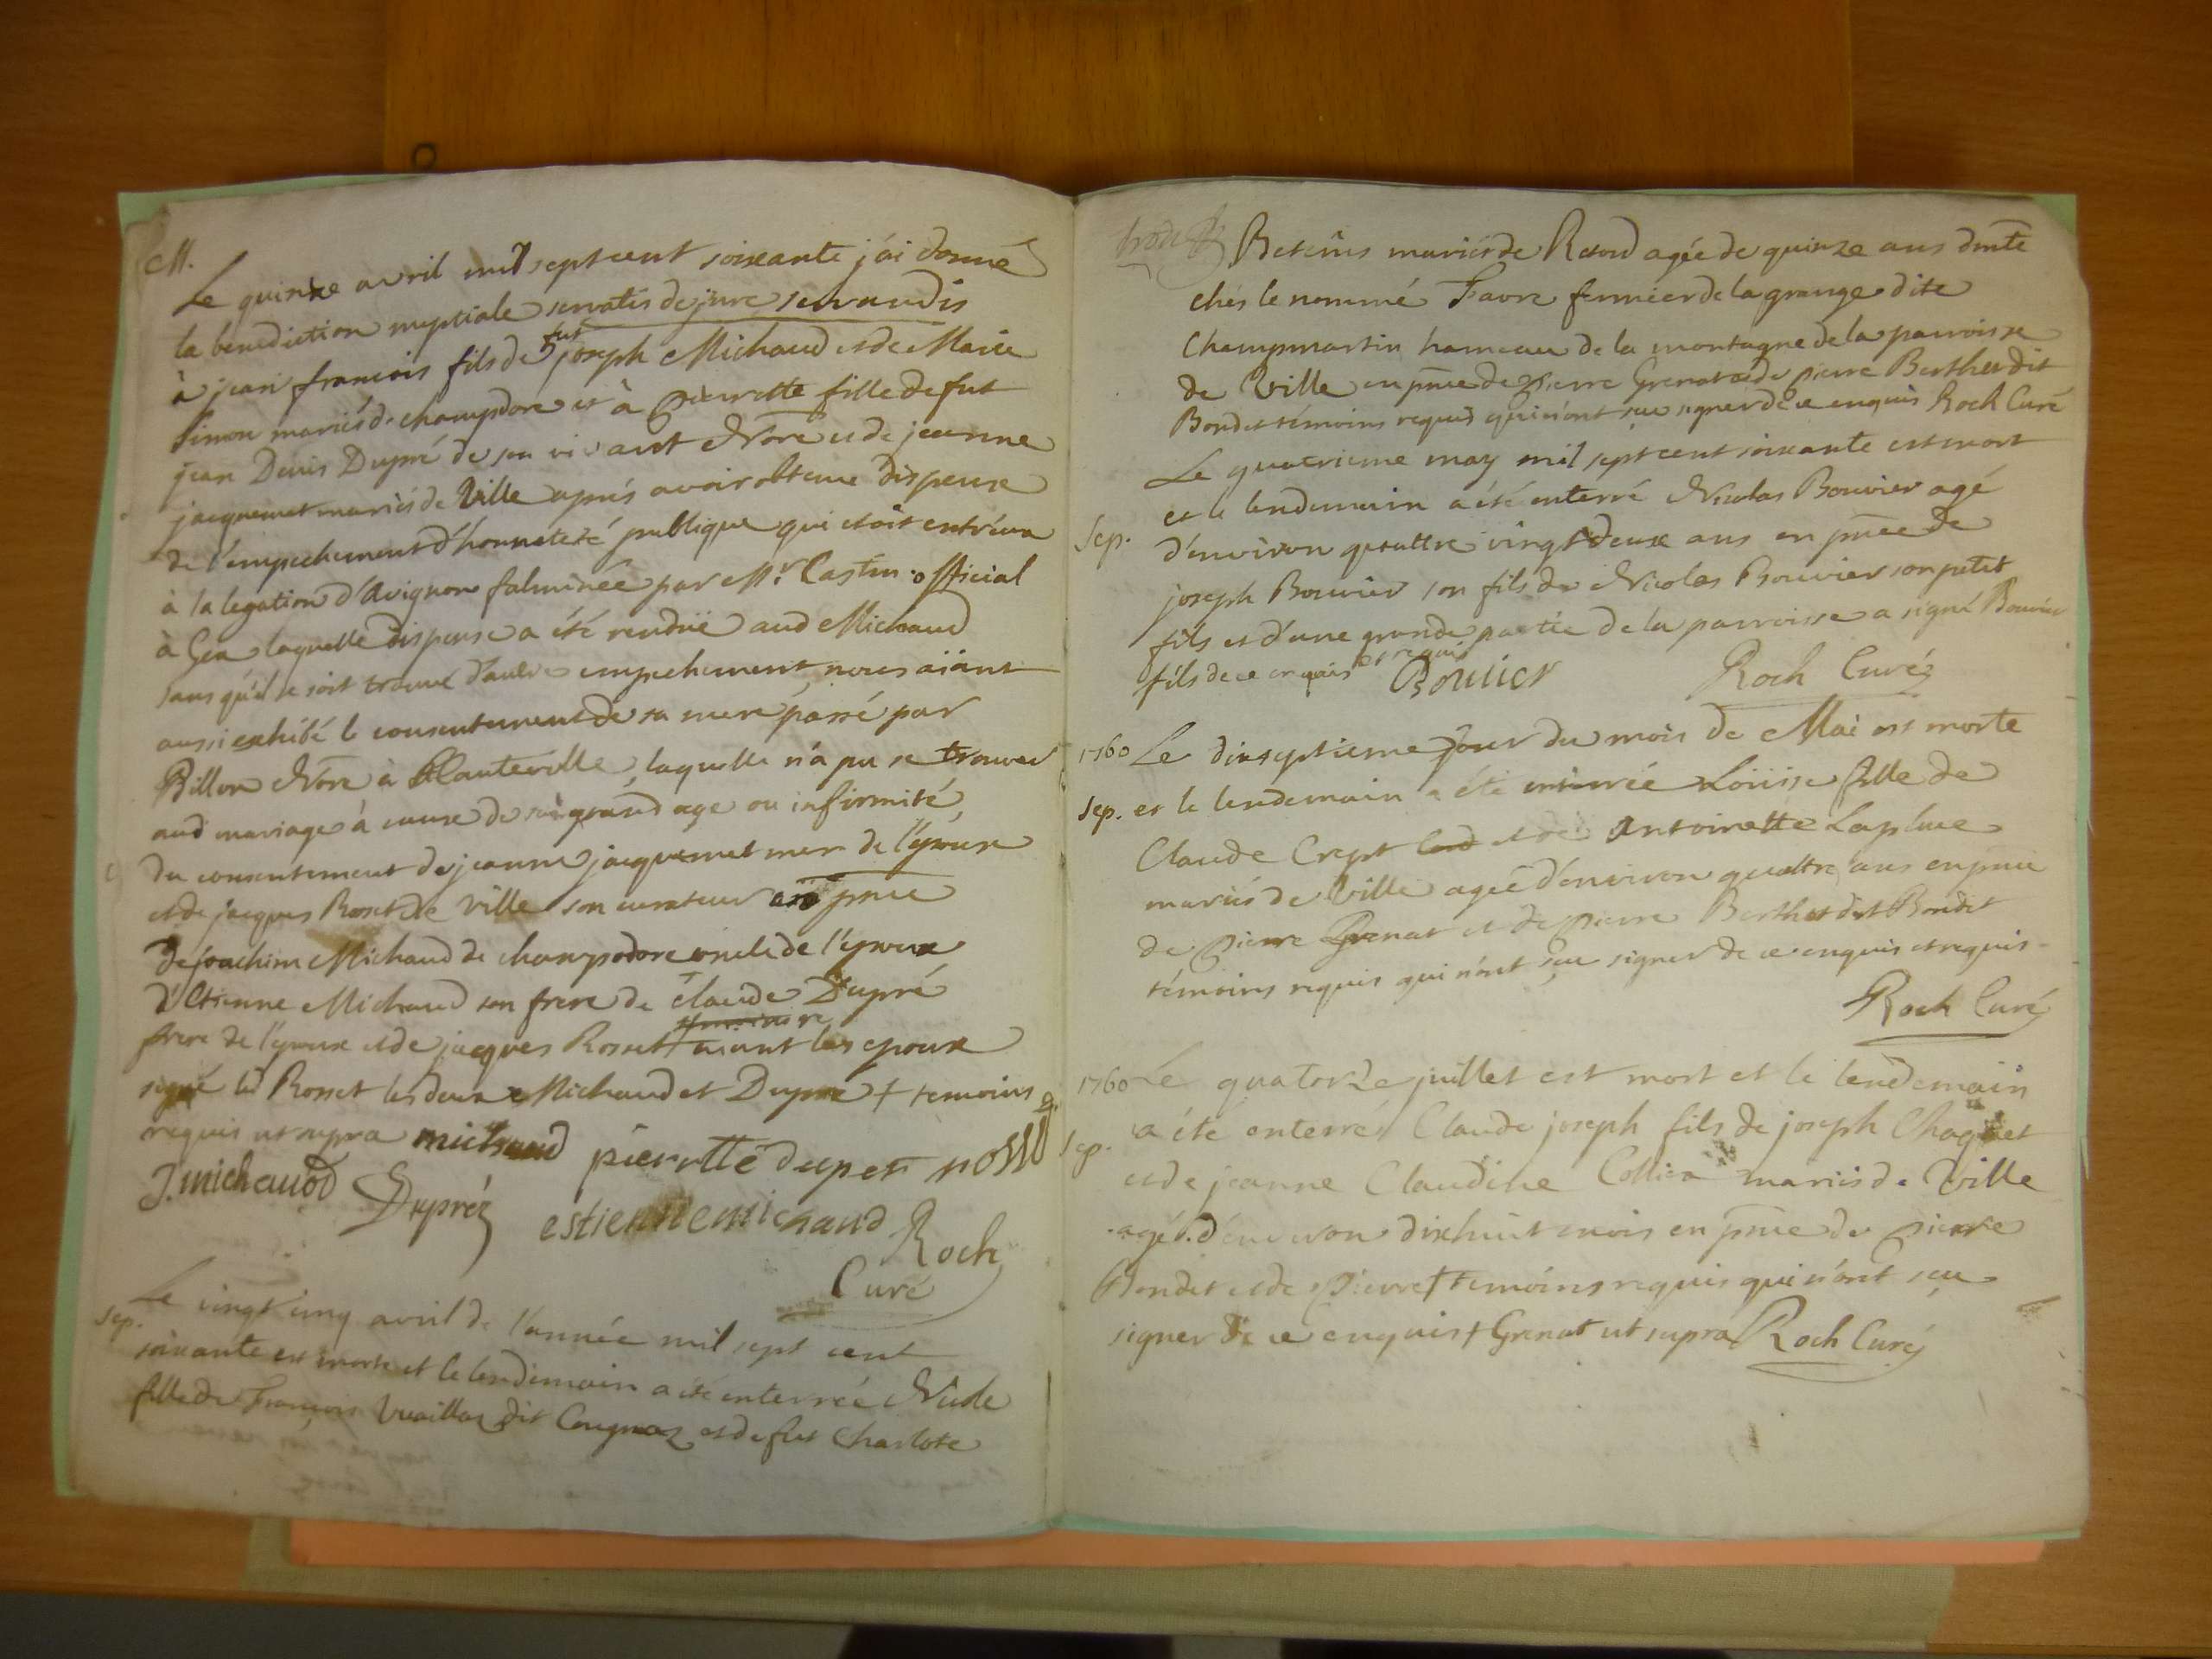 M.
Le quinze avril mil sept cent soixante j'ai donné
la benediction nuptiale servatis de jure servandis
à jean francois fils de fut joseph Michaud et de Marie
Simon mariés de champdore et à pierrette fille de fut
jean Denis Dupré de son vivant Nore et de jeanne
jacquemet mariés de Ville aprés avoir obtenue dispense
de l'empechement d'honneteté publique qui etoit entr'eux
à la legation d'Avignon fulminée par Mr Castin official
à Gex laquelle dispense a été rendüe aud Michaud
sans qu'il se soit trouvé d'autre empechement, nous aiant
aussi exhibé le consentement de sa mere passé par
Billon Nore à Hauteville, laquelle n'a pu se trouver
aud mariage à cause de son grand age ou infirmité
du consentement de jeanne jacquemet mere de l'epouse
et de jacques Rosset de Ville son curateur en pnce
de joachim Michaud de champdore oncle de l'epoux
d'Etienne Michaud son frere de claude Dupré
frere de l'epouse et de jacques Rosset aiant les epoux
signé led Rosset les deux Michaud et Dupré + temoins
requis ut supra michaud pierrette dupen rosset
J. michauod Dupréz estienne michaud Roch
Curé
Sep.
Le vingt cinq avril de l'année mil sept cent
soixante est morte et le lendemain a été enterrée Nicole
fille de François Vuaillaz dit Cougnaz et de fut Charlote
Beteins mariés de Retord agée de quinze ans dmte
chés le nommé Favre fermier de la grange dite
Champmartin hameau de la montagne de la parroisse
de Ville en pnce de pierre Grenat et de pierre Berthet dit
Bondet témoins requis qui n'ont sçu signer de ce enquis Roch Curé
Le quatrieme may mil sept cent soixante est mort
et le lendemain a été enterré Nicolas Bouvier agé
Sep. d'environ quattre vingt deux ans en pnce de
joseph Bouvier son fils de Nicolas Bouvier son petit
fils et d'une grande partie de la parroisse a signé Bouvier
fils de ce enquis et requis Bouuier Roch Curé
1760 Le dixseptieme jour du mois de Mai est morte
Sep. et le lendemain a été enterrée Loüise fille de
Claude Crept et de Antoinette Laplace
mariés de Ville agée d'environ quattre ans en pnce
de pierre Grenat et de pierre Berthet dit Bondet
témoins requis qui n'ont sçu signer de ce enquis et requis
Roch Curé
1760 Le quatorze juillet est mort et le lendemain
Sep. a été enterré Claude joseph fils de joseph Chagnet
et de jeanne Claudine Collier mariés de Ville
agé d'environ dixhuit mois en pnce de pierre
Bondet et de Pierre + temoins requis qui n'ont sçu
signer de ce enquis + Grenat ut supra Roch Curé